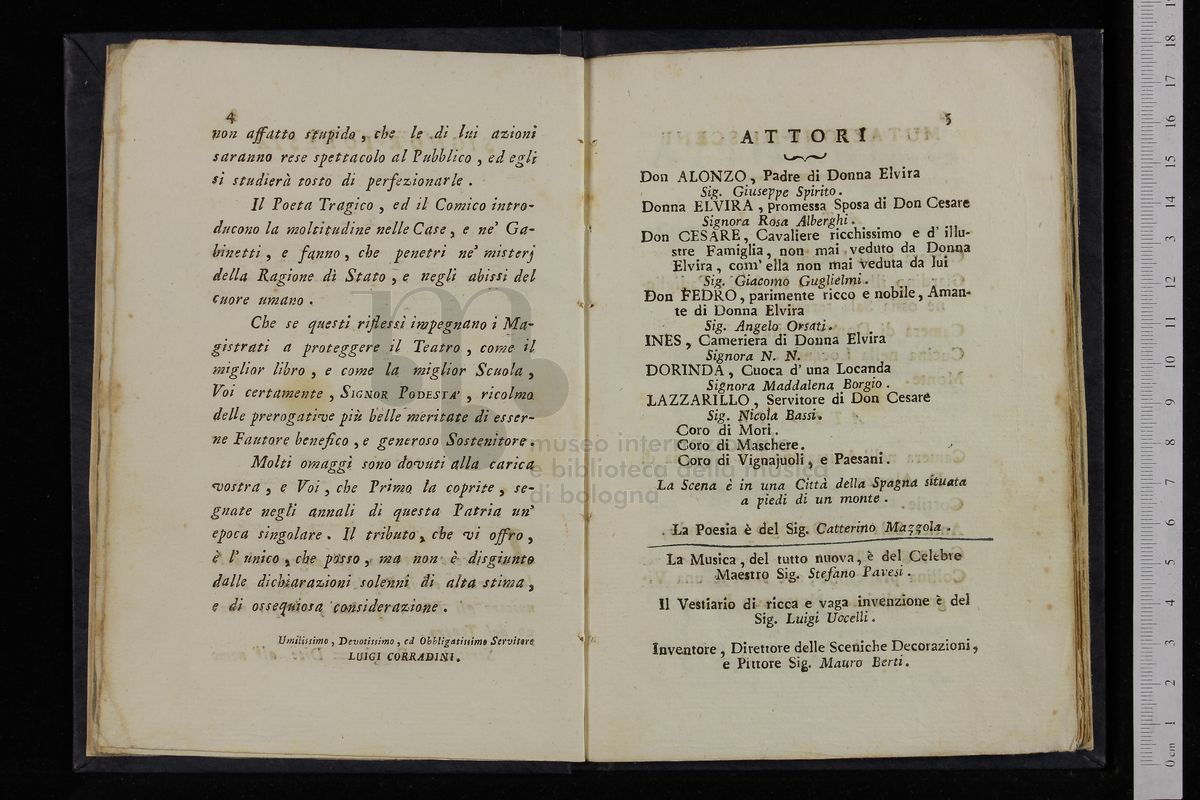 4
non affatto stupido, che le di lui azioni
saranno rese spettacolo al Pubblico, ed egli
si studierà tosto di perfezionarle.
Il Poeta Tragico, ed il Comico intro-
ducono la moltitudine nelle Case, e ne' Ga-
binetti, e fanno, che penetri ne' misterj
della Ragione di Stato, e negli abissi del
cuore umano.
Che se questi riflessi impegnano i Ma-
gistrati a proteggere il Teatro, come il
miglior libro, e come la miglior Scuola,
Voi certamente, SIGNOR PODESTA', ricolmo
delle prerogative più belle meritate di esser-
ne Fautore benefico, e generoso Sostenitore.
Molti omaggi sono dovuti alla carica
vostra, e Voi, che Primo la coprite, se-
gnate negli annali di questa Patria un'
epoca singolare. Il tributo, che vi offro,
è l'unico, che posso, ma non è disgiunto
dalle dichiarazioni solenni di alta stima,
e di ossequiosa considerazione.
Umilissimo, Devotissimo, ed Obbligatissimo Servitore
LUIGI CORRADINI.
5
ATTORI
Don ALONZO, Padre di Donna Elvira
Sig. Giuseppe Spirito.
Donna ELVIRA, promessa Sposa di Don Cesare
Signora Rosa Alberghi.
Don CESARE, Cavaliere ricchissimo e d'illu-
stre Famiglia, non mai veduto da Donna
Elvira, com' ella non mai veduta da lui
Sig. Giacomo Guglielmi.
Don FEDRO, parimente ricco e nobile, Aman-
te di Donna Elvira
Sig. Angelo Orsati.
INES, Cameriera di Donna Elvira
Signora N. N.
DORINDA, Cuoca d'una Locanda
Signora Maddalena Borgio.
LAZZARILLO, Servitore di Don Cesare
Sig. Nicola Bassi.
Coro di Mori.
Coro di Maschere.
Coro di Vignajuoli, e Paesani.
La Scena è in una Città della Spagna situata
a piedi di un monte.
La Poesia è del Sig. Catterino Mazzola.
La Musica, del tutto nuova, è del Celebre
Maestro Sig. Stefano Pavesi.
Il Vestiario di ricca e vaga invenzione è del
Sig. Luigi Uccelli.
Inventore, Direttore delle Sceniche Decorazioni,
e Pittore Sig. Mauro Berti.
museo internazionale
e biblioteca della musica
di bologna
0 cm 1 2 3 4 5 6 7 8 9 10 11 12 13 14 15 16 17 18